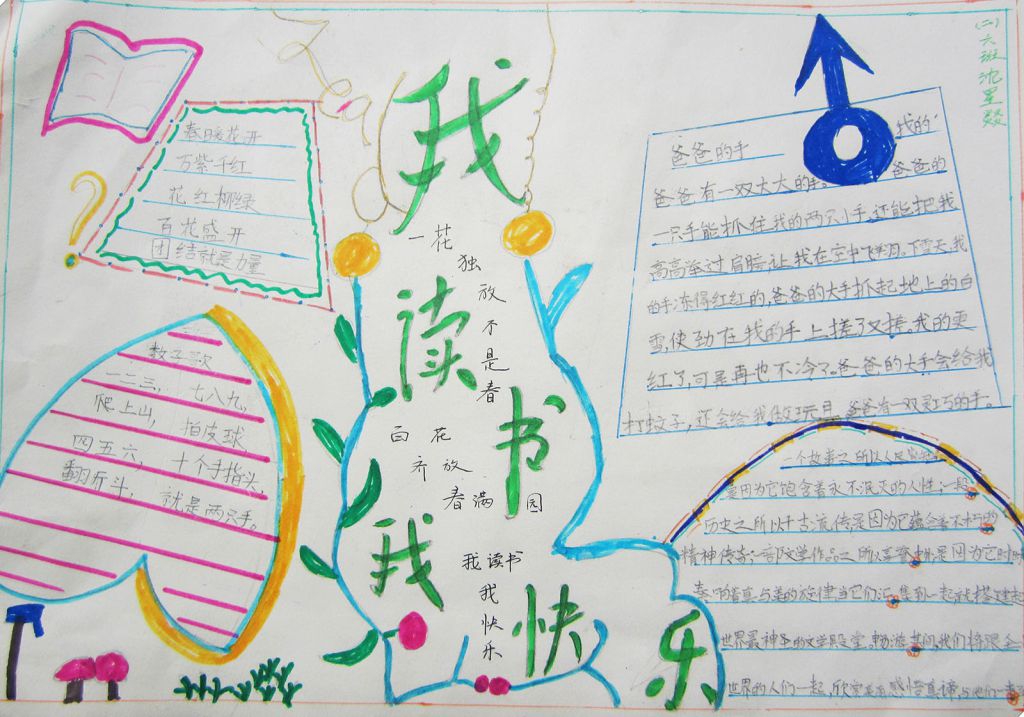 (二)六班沈星燚
我
读
书
我
快
乐
春日暖花开
万紫千红
花红柳绿
百花盛开
团结就是力量
一花独放不是春
百花齐放春满园
我读书
我快乐
数子歌
一二三, 七八九,
爬上山, 拍皮球,
四五六, 十个手指头,
翻斤斗, 就是两只手。
爸爸的手 我的
爸爸有一双大大的手。爸爸的
一只手能抓住我的两只小手,还能把我
高高举过肩膀,让我在空中飞翔。下雪天,我
的手冻得红红的,爸爸的大手抓起地上的白
雪,使劲在我的手上搓了又搓。我的更
红了,可是再也不冷了。爸爸的大手会给我
打蚊子,还会给我做玩具。爸爸有一双灵巧的手。
一个故事之所以人民
是因为它饱含着永不泯灭的人性;一段
历史之所以千古流传是因为它蕴含着不朽的
精神传奇;一部文学作品之所以是因为它时时
奏响着真与美的旋律当它们汇集到一起就搭建起
世界最神圣的文学殿堂。畅游其间,我们将跟全
世界的人们一起,欣赏感悟真谛,与他们一